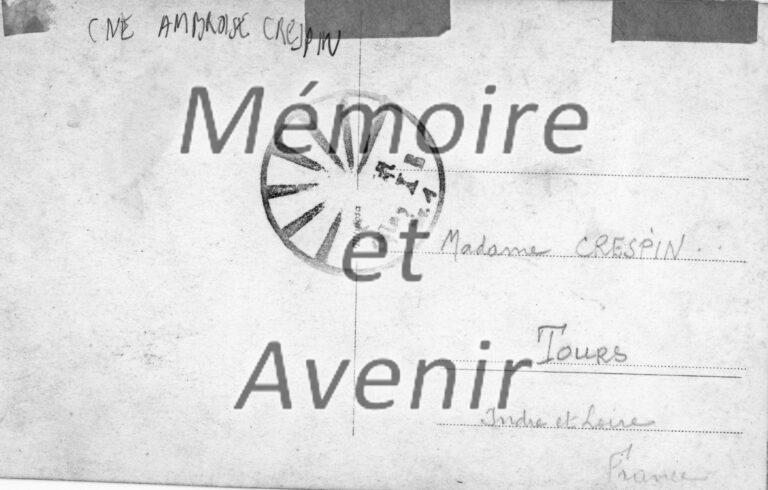 CNE AMBROISE CRESPIN
Mémoire
et
Avenir
Madame CRESPIN
TOURS
Indre et Loire
France